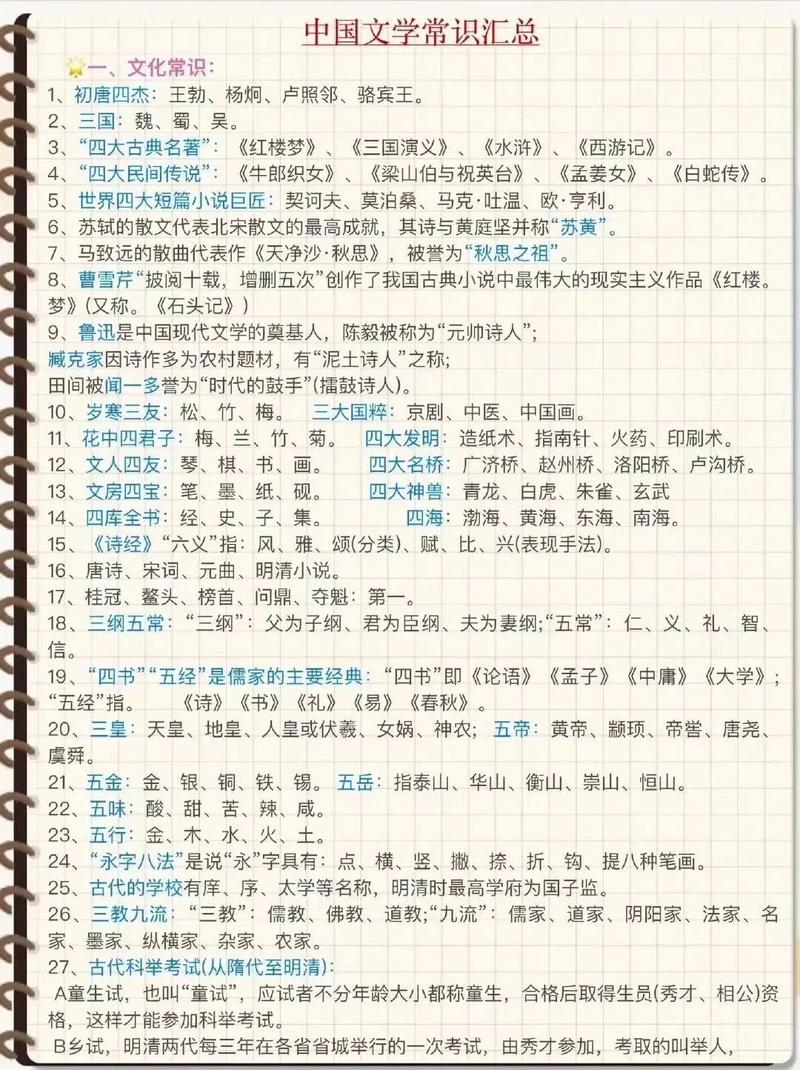 中国文学常识汇总
一、文化常识：
1、初唐四杰：王勃、杨炯、卢照邻、骆宾王。
2、三国：魏、蜀、吴。
3、“四大古典名著”：《红楼梦》、《三国演义》、《水浒》、《西游记》。
4、“四大民间传说”：《牛郎织女》、《梁山伯与祝英台》、《孟姜女》、《白蛇传》。
5、世界四大短篇小说巨匠：契诃夫、莫泊桑、马克·吐温、欧·亨利。
6、苏轼的散文代表北宋散文的最高成就，其诗与黄庭坚并称“苏黄”。
7、马致远的散曲代表作《天净沙·秋思》，被誉为“秋思之祖”。
8、曹雪芹“披阅十载，增删五次”创作了我国古典小说中最伟大的现实主义作品《红楼。
梦》(又称。《石头记》)
9、鲁迅是中国现代文学的奠基人，陈毅被称为“元帅诗人”；
臧克家因诗作多为农村题材，有“泥土诗人”之称；
田间被闻一多誉为“时代的鼓手”(擂鼓诗人)。
10、岁寒三友：松、竹、梅。 三大国粹：京剧、中医、中国画。
11、花中四君子：梅、兰、竹、菊。 四大发明：造纸术、指南针、火药、印刷术。
12、文人四友：琴、棋、书、画。 四大名桥：广济桥、赵州桥、洛阳桥、卢沟桥。
13、文房四宝：笔、墨、纸、砚。 四大神兽：青龙、白虎、朱雀、玄武
14、四库全书：经、史、子、集。 四海：渤海、黄海、东海、南海。
15、《诗经》“六义”指：风、雅、颂(分类)、赋、比、兴(表现手法)。
16、唐诗、宋词、元曲、明清小说。
17、桂冠、鳌头、榜首、问鼎、夺魁：第一。
18、三纲五常：“三纲”：父为子纲、君为臣纲、夫为妻纲;“五常”：仁、义、礼、智、
信。
19、“四书”“五经”是儒家的主要经典：“四书”即《论语》《孟子》《中庸》《大学》；
“五经”指。 《诗》《书》《礼》《易》《春秋》。
20、三皇：天皇、地皇、人皇或伏羲、女娲、神农；五帝：黄帝、颛顼、帝喾、唐尧、
虞舜。
21、五金：金、银、铜、铁、锡。五岳：指泰山、华山、衡山、嵩山、恒山。
22、五味：酸、甜、苦、辣、咸。
23、五行：金、木、水、火、土。
24、“永字八法”是说“永”字具有：点、横、竖、撇、捺、折、钩、提八种笔画。
25、古代的学校有庠、序、太学等名称，明清时最高学府为国子监。
26、三教九流：“三教”：儒教、佛教、道教;“九流”：儒家、道家、阴阳家、法家、名
家、墨家、纵横家、杂家、农家。
27、古代科举考试(从隋代至明清)：
A童生试，也叫“童试”，应试者不分年龄大小都称童生，合格后取得生员(秀才、相公)资
格，这样才能参加科举考试。
B乡试，明清两代每三年在各省省城举行的一次考试，由秀才参加，考取的叫举人，